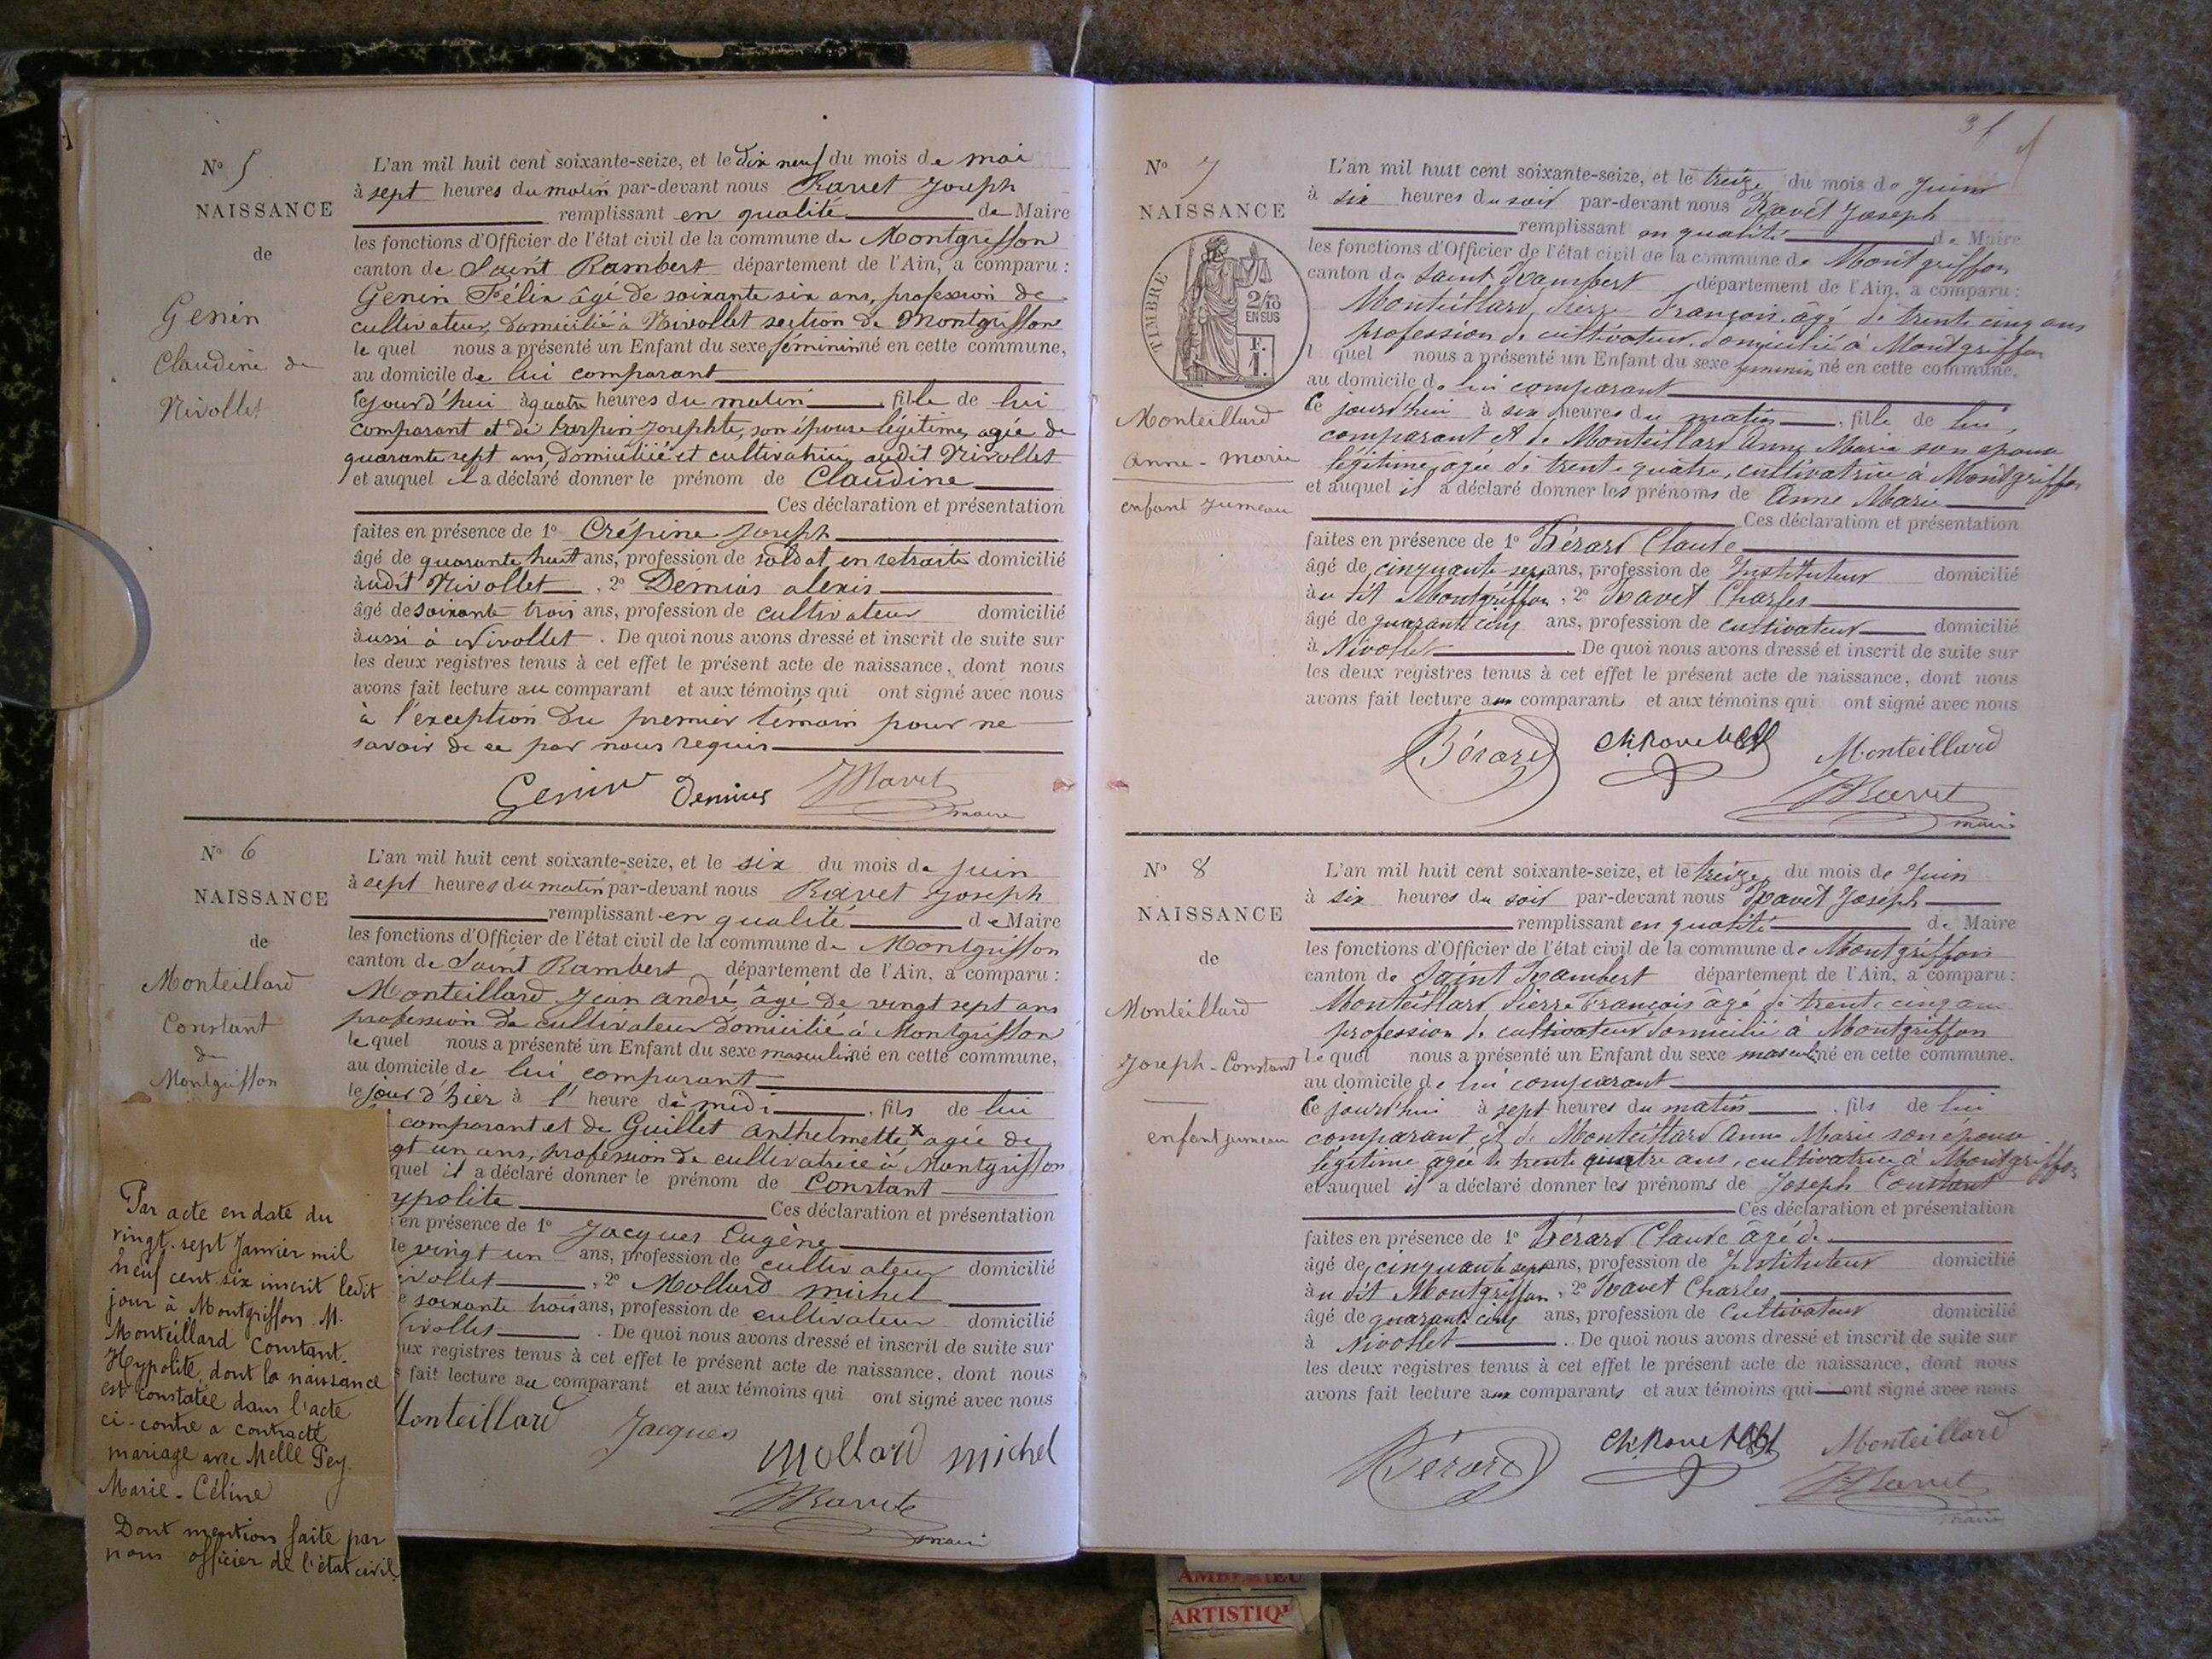 N° 5
NAISSANCE
de
Genin
Claudine de
Nivollet
L'an mil huit cent soixante-seize, et le dix neuf du mois de mai
à sept heures du matin par-devant nous Ravet Joseph
remplissant en qualité de Maire
les fonctions d'Officier de l'état civil de la commune de Montgriffon
canton de Saint Rambert département de l'Ain, a comparu :
Genin Félix âgé de soixante six ans, profession de
cultivateur, domicilié à Nivollet section de Montgriffon
le quel nous a présenté un Enfant du sexe féminin né en cette commune,
au domicile de lui comparant
Cejourd'hui à quatre heures du matin, fille de lui
comparant et de Josephte, son épouse légitime, agée de
quarante sept ans, domiciliée et cultivatrice audit Nivollet
et auquel il a déclaré donner le prénom de Claudine
Ces déclaration et présentation
faites en présence de 1° Crépine Joseph
âgé de quarante huit ans, profession de soldat en retraite domicilié
audit Nivollet, 2° Demias alexis
âgé de soixante trois ans, profession de cultivateur domicilié
aussi à Nivollet. De quoi nous avons dressé et inscrit de suite sur
les deux registres tenus à cet effet le présent acte de naissance, dont nous
avons fait lecture au comparant et aux témoins qui ont signé avec nous
à l'exception du premier témoin pour ne
savoir de ce par nous requis
Genin Demias JRavet
maire
N° 6
NAISSANCE
de
Monteillard
Constant
de
Montgriffon
L'an mil huit cent soixante-seize, et le six du mois de juin
à sept heures du matin par-devant nous Ravet Joseph
remplissant en qualité de Maire
les fonctions d'Officier de l'état civil de la commune de Montgriffon
canton de Saint Rambert département de l'Ain, a comparu :
Monteillard Jean andré âgé de vingt sept ans
profession de cultivateur domicilié à Montgriffon
le quel nous a présenté un Enfant du sexe masculin né en cette commune,
au domicile de lui comparant
le jour d'hier à l' heure de midi, fils de lui
comparant et de Guillet anthelmette x agée de
gt un ans, profession de cultivatrice à Montgriffon
quel il a déclaré donner le prénom de Constant
ypolite Ces déclaration et présentation
en présence de 1° Jacques Eugène
de vingt un ans, profession de cultivateur domicilié
ivollet, 2° Mollard michel
e soixante trois ans, profession de cultivateur domicilié
ivollet. De quoi nous avons dressé et inscrit de suite sur
ux registres tenus à cet effet le présent acte de naissance, dont nous
s fait lecture au comparant et aux témoins qui ont signé avec nous
Monteillard Jacques Mollard michel
JRavet
maire
Par acte en date du
vingt-sept Janvier mil
neuf cent six inscrit ledit
jour à Montgriffon M.
Monteillard Constant-
Hypolite, dont la naissance
est constatée dans l'acte
ci-contre a contracté
mariage avec Melle Pey
Marie-Céline
Dont mention faite par
nous officier de l'état civil.
N° 7
NAISSANCE
TIMBRE
2/10
EN SUS
F.
1.
Monteillard
Anne-Marie
enfant Jumeau
L'an mil huit cent soixante-seize, et le treize du mois de Juin
à six heures du soir par-devant nous Ravet Joseph
remplissant en qualité de Maire
les fonctions d'Officier de l'état civil de la commune de Montgriffon
canton de Saint Rambert département de l'Ain, a comparu :
Monteillard Pierre François âgé de trente cinq ans
profession de cultivateur domicilié à Montgriffon
l quel nous a présenté un Enfant du sexe féminin né en cette commune,
au domicile de lui comparant
Ce jourd'hui à six heures du matin, fille de lui
comparant et de Monteillard Anne Marie son epouse
légitime, âgée de trente quatre, cultivatrice à Montgriffon
et auquel il a déclaré donner les prénoms de Anne Marie
Ces déclaration et présentation
faites en présence de 1° Bérard Claude
âgé de cinquante sept ans, profession de Instituteur domicilié
au dit Montgriffon, 2° Ravet Charles
âgé de quarante cinq ans, profession de cultivateur domicilié
à Nivollet De quoi nous avons dressé et inscrit de suite sur
les deux registres tenus à cet effet le présent acte de naissance, dont nous
avons fait lecture aux comparants et aux témoins qui ont signé avec nous
Bérard Monteillard
JRavet
maire
N° 8
NAISSANCE
de
Monteillard
Joseph-Constant
enfant jumeau
L'an mil huit cent soixante-seize, et le treize du mois de Juin
à six heures du soir par-devant nous Ravet Joseph
remplissant en qualité de Maire
les fonctions d'Officier de l'état civil de la commune de Montgriffon
canton de Saint Rambert département de l'Ain, a comparu :
Monteillard Pierre François âgé de trente cinq ans
profession de cultivateur domicilié à Montgriffon
le quel nous a présenté un Enfant du sexe masculin né en cette commune,
au domicile de lui comparant
Ce jourd'hui à sept heures du matin, fils de lui
comparant et de Monteillard Anne Marie son épouse
légitime âgée de trente quatre ans, cultivatrice à Montgriffon
et auquel il a déclaré donner les prénoms de Joseph Constant
Ces déclaration et présentation
faites en présence de 1° Bérard Claude âgé de
âgé de cinquante sept ans, profession de Instituteur domicilié
au dit Montgriffon, 2° Ravet Charles
âgé de quarante cinq ans, profession de Cultivateur domicilié
à Nivollet. De quoi nous avons dressé et inscrit de suite sur
les deux registres tenus à cet effet le présent acte de naissance, dont nous
avons fait lecture aux comparants et aux témoins qui ont signé avec nous
Bérard Monteillard
JRavet
maire
AMBERIEU
ARTISTIQ